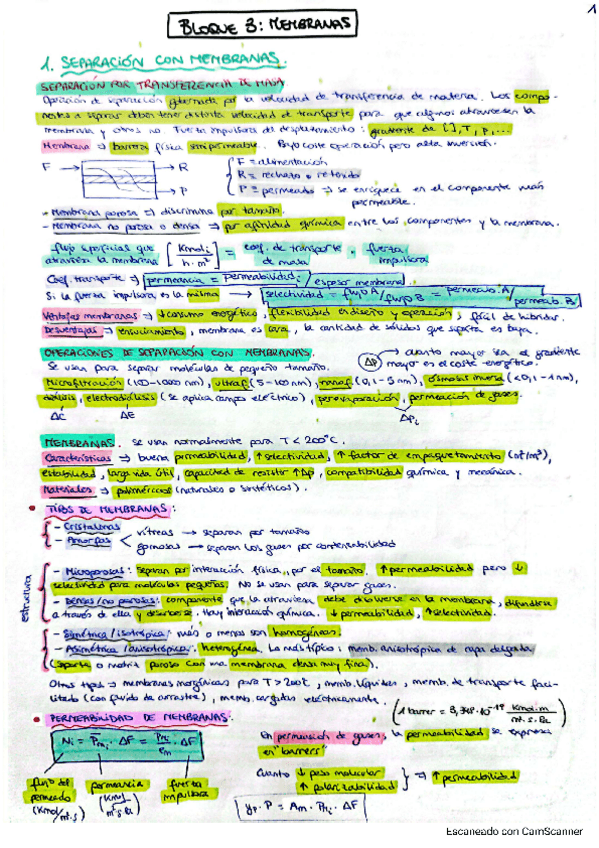 1
BLOQUE 3: MEMBRANAS
1. SEPARACIÓN CON MEMBRANAS.
SEPARACIÓN POR TRANSFERENCIA DE MASA
Operación de separación gobernada por la velocidad de transferencia de materia. Los compo-
nentes a separar deben tener distinta velocidad de transporte para que algunos atraviesen la
membrana y otros no. Fuerza impulsora de desplazamiento: gradiente de [ ], T, P, ...
Membrana => barrera física semipermeable. Bajo coste operación pero alta inversión.
F → → R → P
F = alimentación
R = rechazo o retenido
P = permeado => se enriquece en el componente más
permeable.
- Membrana porosa => discrimina por tamaño.
- Membrana no porosa o densa => por afinidad química entre los componentes y la membrana.
flujo especies que atraviesa la membrana [Kmol i / h·m²] = coef. de transporte de masa · fuerza impulsora
Coef. transporte => permeancia = permeabilidad i / espesor membrana
Si la fuerza impulsora es la misma → selectividad = flujo A / flujo B = permeab. A / permeab. B
Ventajas membranas => ↓ consumo energético, flexibilidad en diseño y operación, fácil de hibridar.
Desventajas => ensuciamiento, membrana es cara, la cantidad de sólidos que soporta es baja.
OPERACIONES DE SEPARACIÓN CON MEMBRANAS.
ΔP → cuanto mayor sea el gradiente
mayor es el coste energético.
Se usan para separar moléculas de pequeño tamaño.
Microfiltración (100-1000 nm), ultraf (5-100 nm), nanof (0,1-5 nm), ósmosis inversa (<0,1-1 nm),
diálisis, electrodiálisis (se aplica campo eléctrico), pervaporación, permeación de gases.
ΔC ΔE ΔPi
MEMBRANAS. Se usan normalmente para T < 200°C.
Características => buena permeabilidad, ↑ selectividad, ↑ factor de empaquetamiento (m²/m³),
estabilidad, larga vida útil, capacidad de resistir ↑Δp, compatibilidad química y mecánica.
Materiales => poliméricos (naturales o sintéticos).
• TIPOS DE MEMBRANAS:
- Cristalinas
- Amorfas
vítreas → separan por tamaño
gomosas → separan los gases por condensabilidad
estructura
- Microporosas: Separan por interacción física, por el tamaño. ↑ permeabilidad pero ↓
selectividad para moléculas pequeñas. No se usan para separar gases.
- Densas/no porosas: componente que la atraviesa debe disolverse en la membrana, difundirse
a través de ella y desorberse. Hay interacción química. ↓ permeabilidad, ↑ selectividad.
- Simétrica/isotrópica: más o menos son homogéneas.
- Asimétrica/anisotrópica: heterogénea. La más típica: memb. anisotrópica de capa delgada
(soporte o matriz porosa con una membrana densa muy fina).
Otros tipos → membranas inorgánicas para T > 200°C, memb. líquidas, memb. de transporte faci-
litado (con fluido de arrastre), memb. cargadas eléctricamente.
• PERMEABILIDAD DE MEMBRANAS.
Ni = P̄mi · ΔF = Pmi / em · ΔF
flujo del permeado (Kmol/m²·s)
permeancia
fuerza impulsora
En permeación de gases, la permeabilidad se expresa
en "barrers"
Cuanto ↓ peso molecular
↑ polarizabilidad
=> ↑ permeabilidad
Escaneado con CamScanner